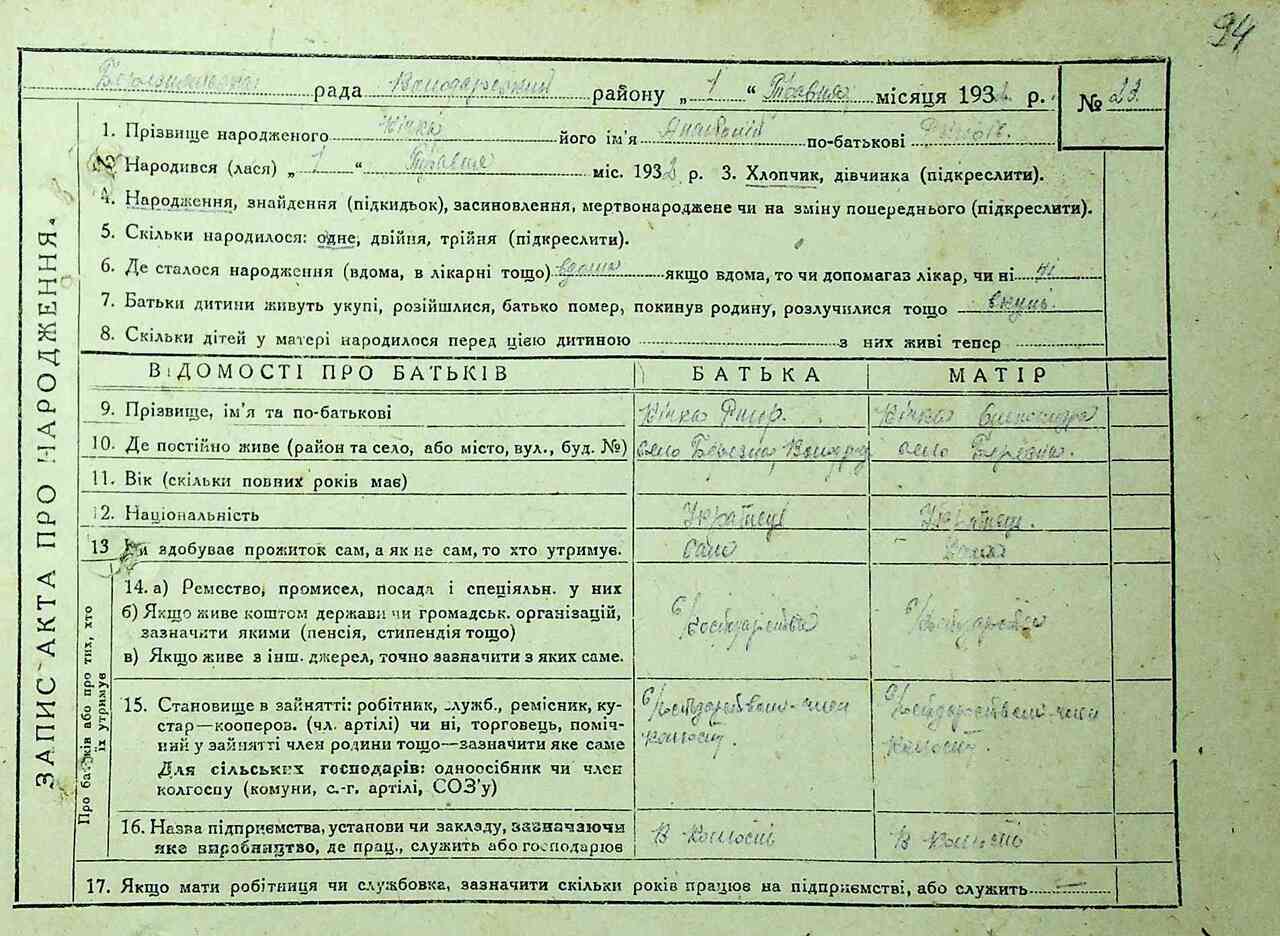 94
рада Володарський району „ 1 “ Травня місяця 1932 р. № 23.
1. Прізвище народженого Кічка його ім'я Анатолій по-батькові
2. Народився (лася) „ 1 “ Травня міс. 1932 р. 3. Хлопчик, дівчинка (підкреслити).
4. Народження, знайдення (підкидьок), засиновлення, мертвонароджене чи на зміну попереднього (підкреслити).
5. Скільки народилося: одне, двійня, трійня (підкреслити).
6. Де сталося народження (вдома, в лікарні тощо) вдома якщо вдома, то чи допомагаз лікар, чи ні ні
7. Батьки дитини живуть укупі, розійшлися, батько помер, покинув родину, розлучилися тощо вкупі.
8. Скільки дітей у матері народилося перед цією дитиною з них живі тепер
ЗАПИС АКТА ПРО НАРОДЖЕННЯ.
ВІДОМОСТІ ПРО БАТЬКІВ БАТЬКА МАТІР
9. Прізвище, ім'я та по-батькові Кічка Кічка Олександра
10. Де постійно живе (район та село, або місто, вул., буд. №) село Березна, село Березна.
11. Вік (скільки повних років має)
12. Національність Українець Українець.
13 Чи здобуває прожиток сам, а як не сам, то хто утримує. Сам Сама
Про батьків або про тих, хто їх утримує
14. а) Ремество, промисел, посада і спеціяльн. у них
б) Якщо живе коштом держави чи громадськ. організацій,
зазначити якими (пенсія, стипендія тощо)
в) Якщо живе з інш. джерел, точно зазначити з яких саме.
15. Становище в зайнятті: робітник, служб., ремісник, ку-
стар—кооперов. (чл. артілі) чи ні, торговець, поміч-
ний у зайнятті член родини тощо—зазначити яке саме
Для сільських господарів: одноосібник чи член
колгоспу (комуни, с.-г. артілі, СОЗ'у)
16. Назва підприємства, установи чи закладу, зазначаючи
яке виробництво, де прац., служить або господарює В колгоспі В колгоспі
17. Якщо мати робітниця чи службовка, зазначити скільки років працює на підприємстві, або служить —